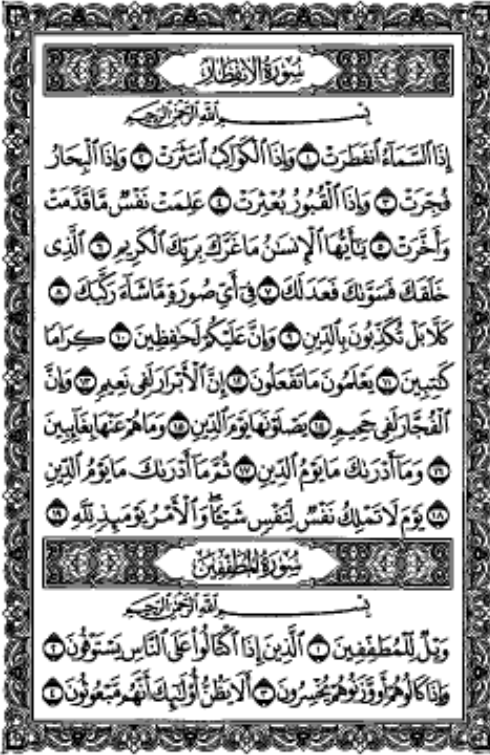 سُورَةُ الِانفِطَارِ
بِسْمِ اللَّهِ الرَّحْمَٰنِ الرَّحِيمِ
إِذَا ٱلسَّمَآءُ ٱنفَطَرَتْ ۝١ وَإِذَا ٱلْكَوَاكِبُ ٱنتَثَرَتْ ۝٢ وَإِذَا ٱلْبِحَارُ
فُجِّرَتْ ۝٣ وَإِذَا ٱلْقُبُورُ بُعْثِرَتْ ۝٤ عَلِمَتْ نَفْسٌ مَّا قَدَّمَتْ
وَأَخَّرَتْ ۝٥ يَٰٓأَيُّهَا ٱلْإِنسَٰنُ مَا غَرَّكَ بِرَبِّكَ ٱلْكَرِيمِ ۝٦ ٱلَّذِى
خَلَقَكَ فَسَوَّىٰكَ فَعَدَلَكَ ۝٧ فِىٓ أَىِّ صُورَةٍ مَّا شَآءَ رَكَّبَكَ ۝٨
كَلَّا بَلْ تُكَذِّبُونَ بِٱلدِّينِ ۝٩ وَإِنَّ عَلَيْكُمْ لَحَٰفِظِينَ ۝١٠ كِرَامًا
كَٰتِبِينَ ۝١١ يَعْلَمُونَ مَا تَفْعَلُونَ ۝١٢ إِنَّ ٱلْأَبْرَارَ لَفِى نَعِيمٍ ۝١٣ وَإِنَّ
ٱلْفُجَّارَ لَفِى جَحِيمٍ ۝١٤ يَصْلَوْنَهَا يَوْمَ ٱلدِّينِ ۝١٥ وَمَا هُمْ عَنْهَا بِغَآئِبِينَ
۝١٦ وَمَآ أَدْرَىٰكَ مَا يَوْمُ ٱلدِّينِ ۝١٧ ثُمَّ مَآ أَدْرَىٰكَ مَا يَوْمُ ٱلدِّينِ
۝١٨ يَوْمَ لَا تَمْلِكُ نَفْسٌ لِّنَفْسٍ شَيْـًٔا ۖ وَٱلْأَمْرُ يَوْمَئِذٍ لِّلَّهِ ۝١٩
سُورَةُ المُطَفِّفِينَ
بِسْمِ اللَّهِ الرَّحْمَٰنِ الرَّحِيمِ
وَيْلٌ لِّلْمُطَفِّفِينَ ۝١ ٱلَّذِينَ إِذَا ٱكْتَالُوا۟ عَلَى ٱلنَّاسِ يَسْتَوْفُونَ ۝٢
وَإِذَا كَالُوهُمْ أَو وَّزَنُوهُمْ يُخْسِرُونَ ۝٣ أَلَا يَظُنُّ أُو۟لَٰٓئِكَ أَنَّهُم مَّبْعُوثُونَ ۝٤